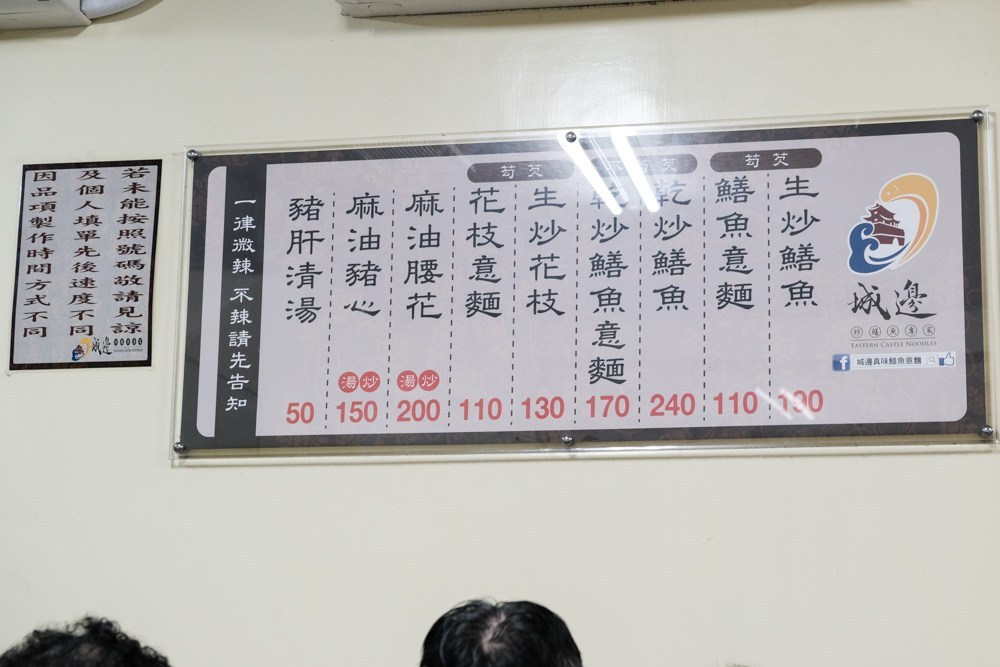 芶芡
生炒鱔魚
130
鱔魚意麵
110
芶芡
乾炒鱔魚
240
乾炒鱔魚意麵
170
芶芡
生炒花枝
130
花枝意麵
110
麻油腰花
湯 炒
200
麻油豬心
湯 炒
150
豬肝清湯
50
一律微辣 不辣請先告知
城邊
炒鱔魚專家
EASTERN CASTLE NOODLES
城邊真味鱔魚意麵
若未能按照號碼敬請見諒
及個人填單先後速度不同
因品項製作時間方式不同
城邊